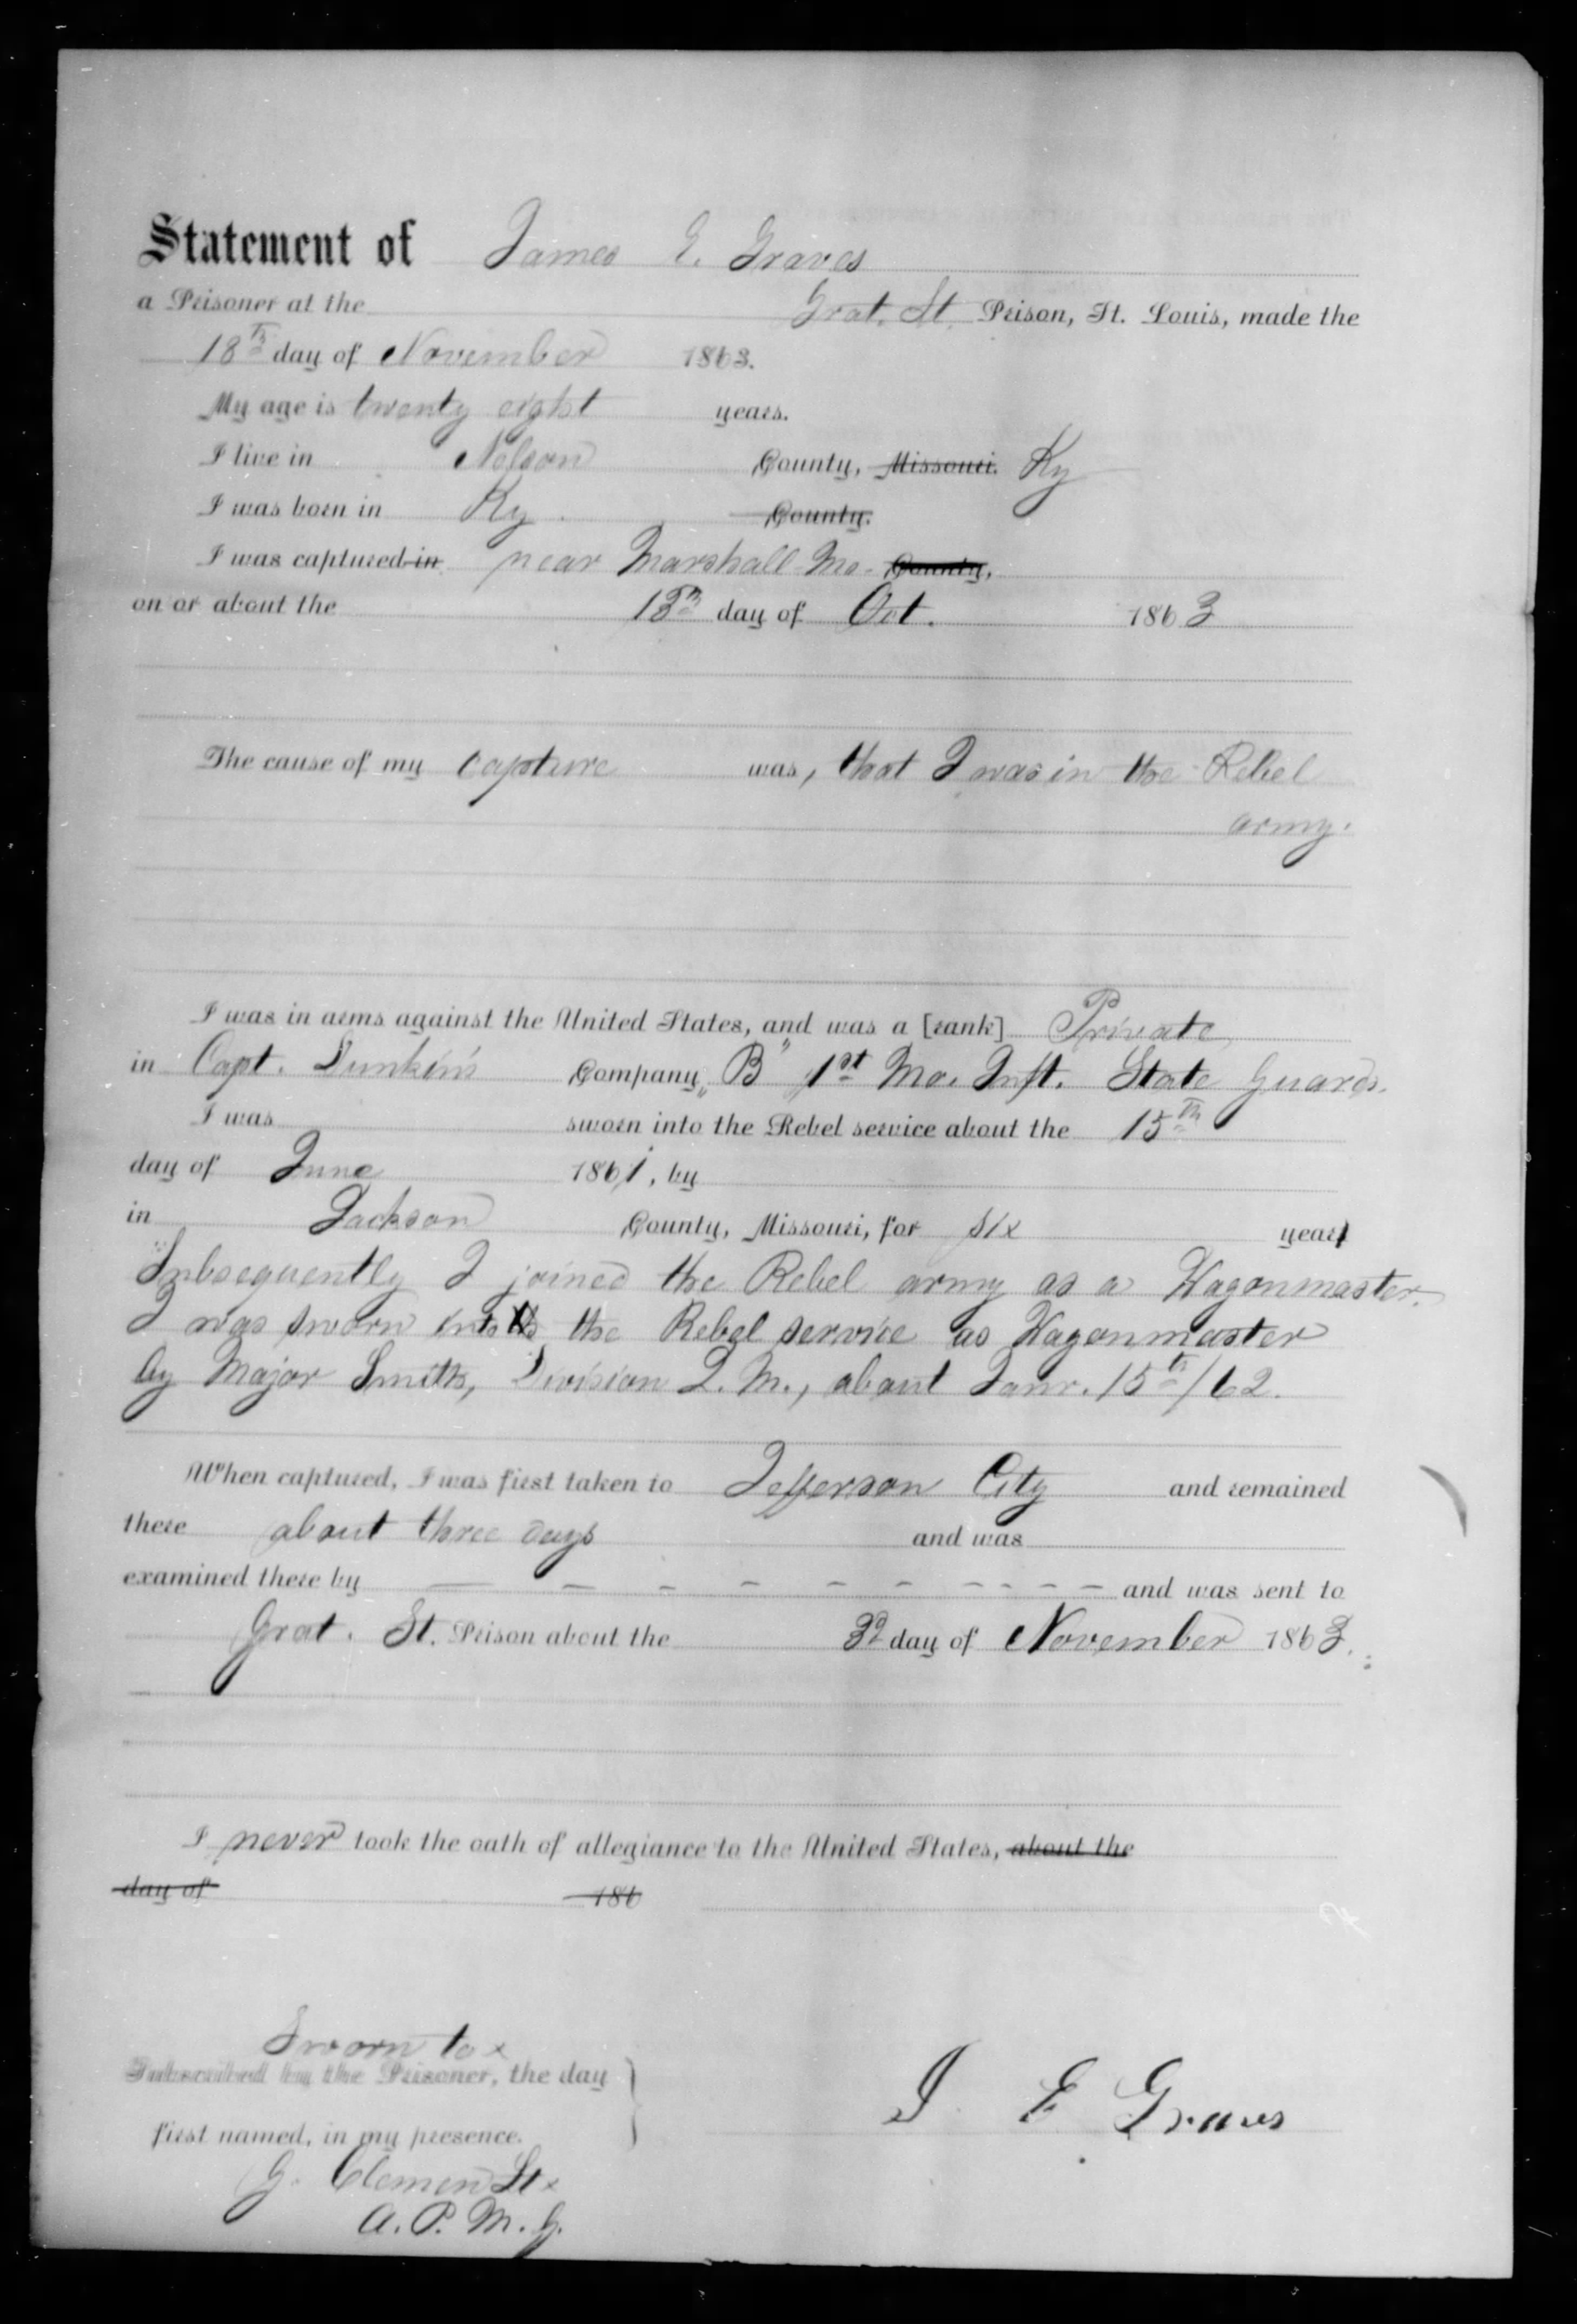 Statement of James E. Graves
a Prisoner at the Grat. St. Prison, St. Louis, made the
18th day of November 1863.
My age is twenty eight years.
I live in Nelson County, Missouri. Ky
I was born in Ky. County.
I was captured in near Marshall Mo. County,
on or about the 13th day of Oct. 1863
The cause of my capture was, that I was in the Rebel
army.
I was in arms against the United States, and was a [rank] Private
in Capt. Dunkin's Company "B" 1st Mo. Inft. State Guards.
I was sworn into the Rebel service about the 15th
day of June 1861, by
in Jackson County, Missouri, for six year
Subsequently I joined the Rebel army as a Wagonmaster.
I was sworn into the Rebel service as Wagonmaster
by Major Smith, Division Q. M., about Janr. 15th/62.
When captured, I was first taken to Jefferson City and remained
there about three days and was
examined there by — – – – – – – – – – and was sent to
Grat. St. Prison about the 3d day of November 1863.
I never took the oath of allegiance to the United States, about the
day of 186
Sworn to &
Subscribed by the Prisoner, the day
first named, in my presence.
J E Graves
A. P. M. G.